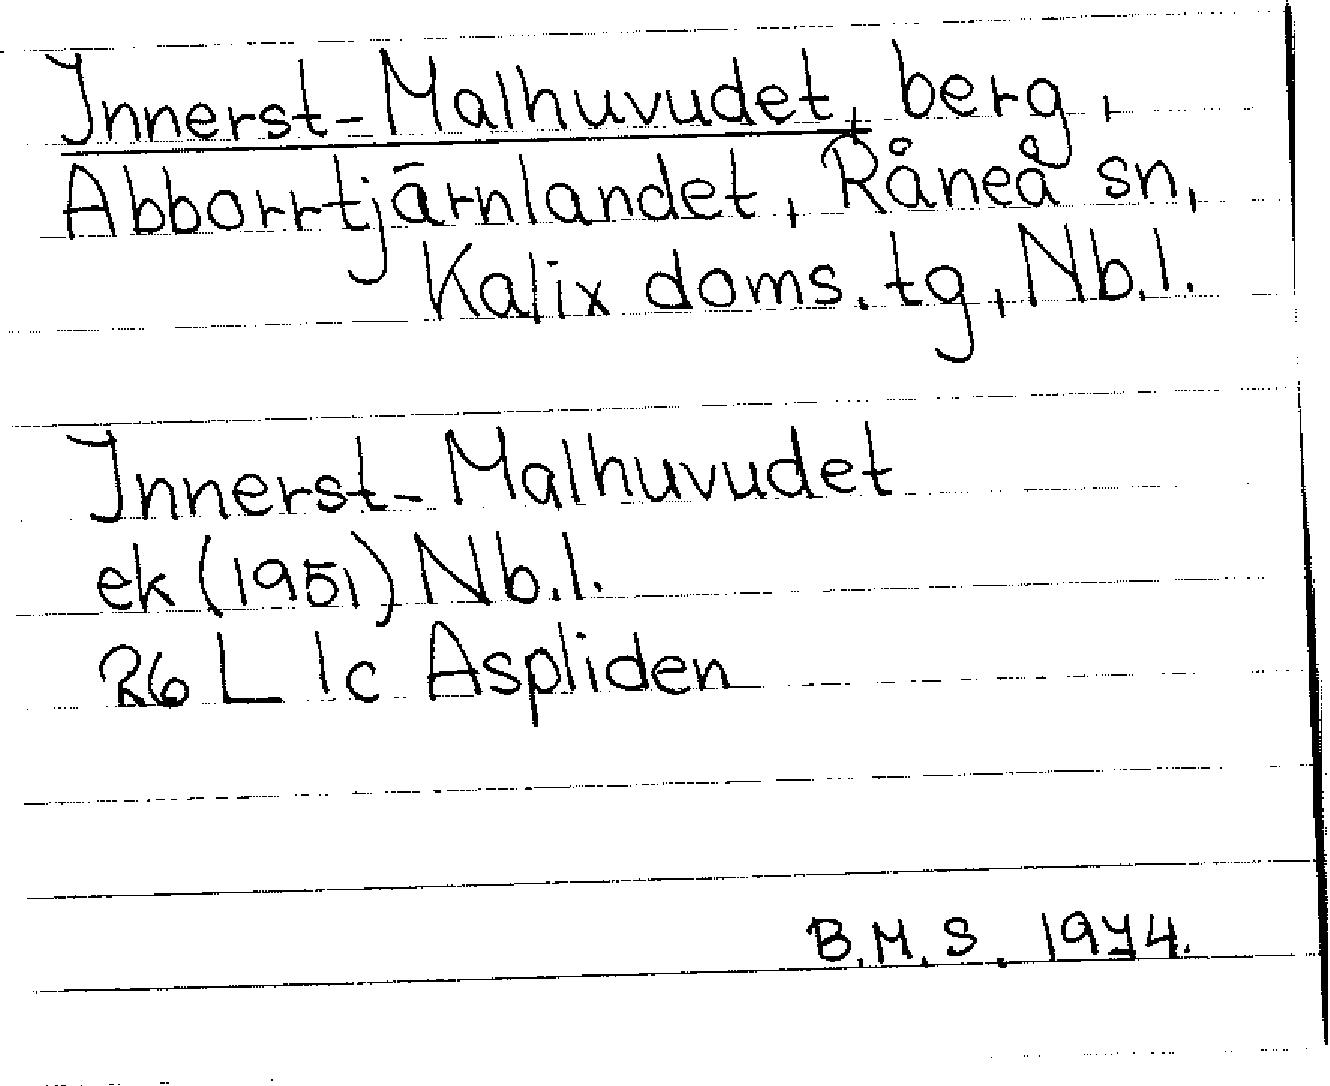 Innerst-Malhuvudet, berg,
Abborrtjärnlandet, Råneå sn,
Kalix doms. tg, Nb.l.
Innerst-Malhuvudet
ek (1951) Nb.l.
26 L 1c Aspliden
B.M.S. 1974.